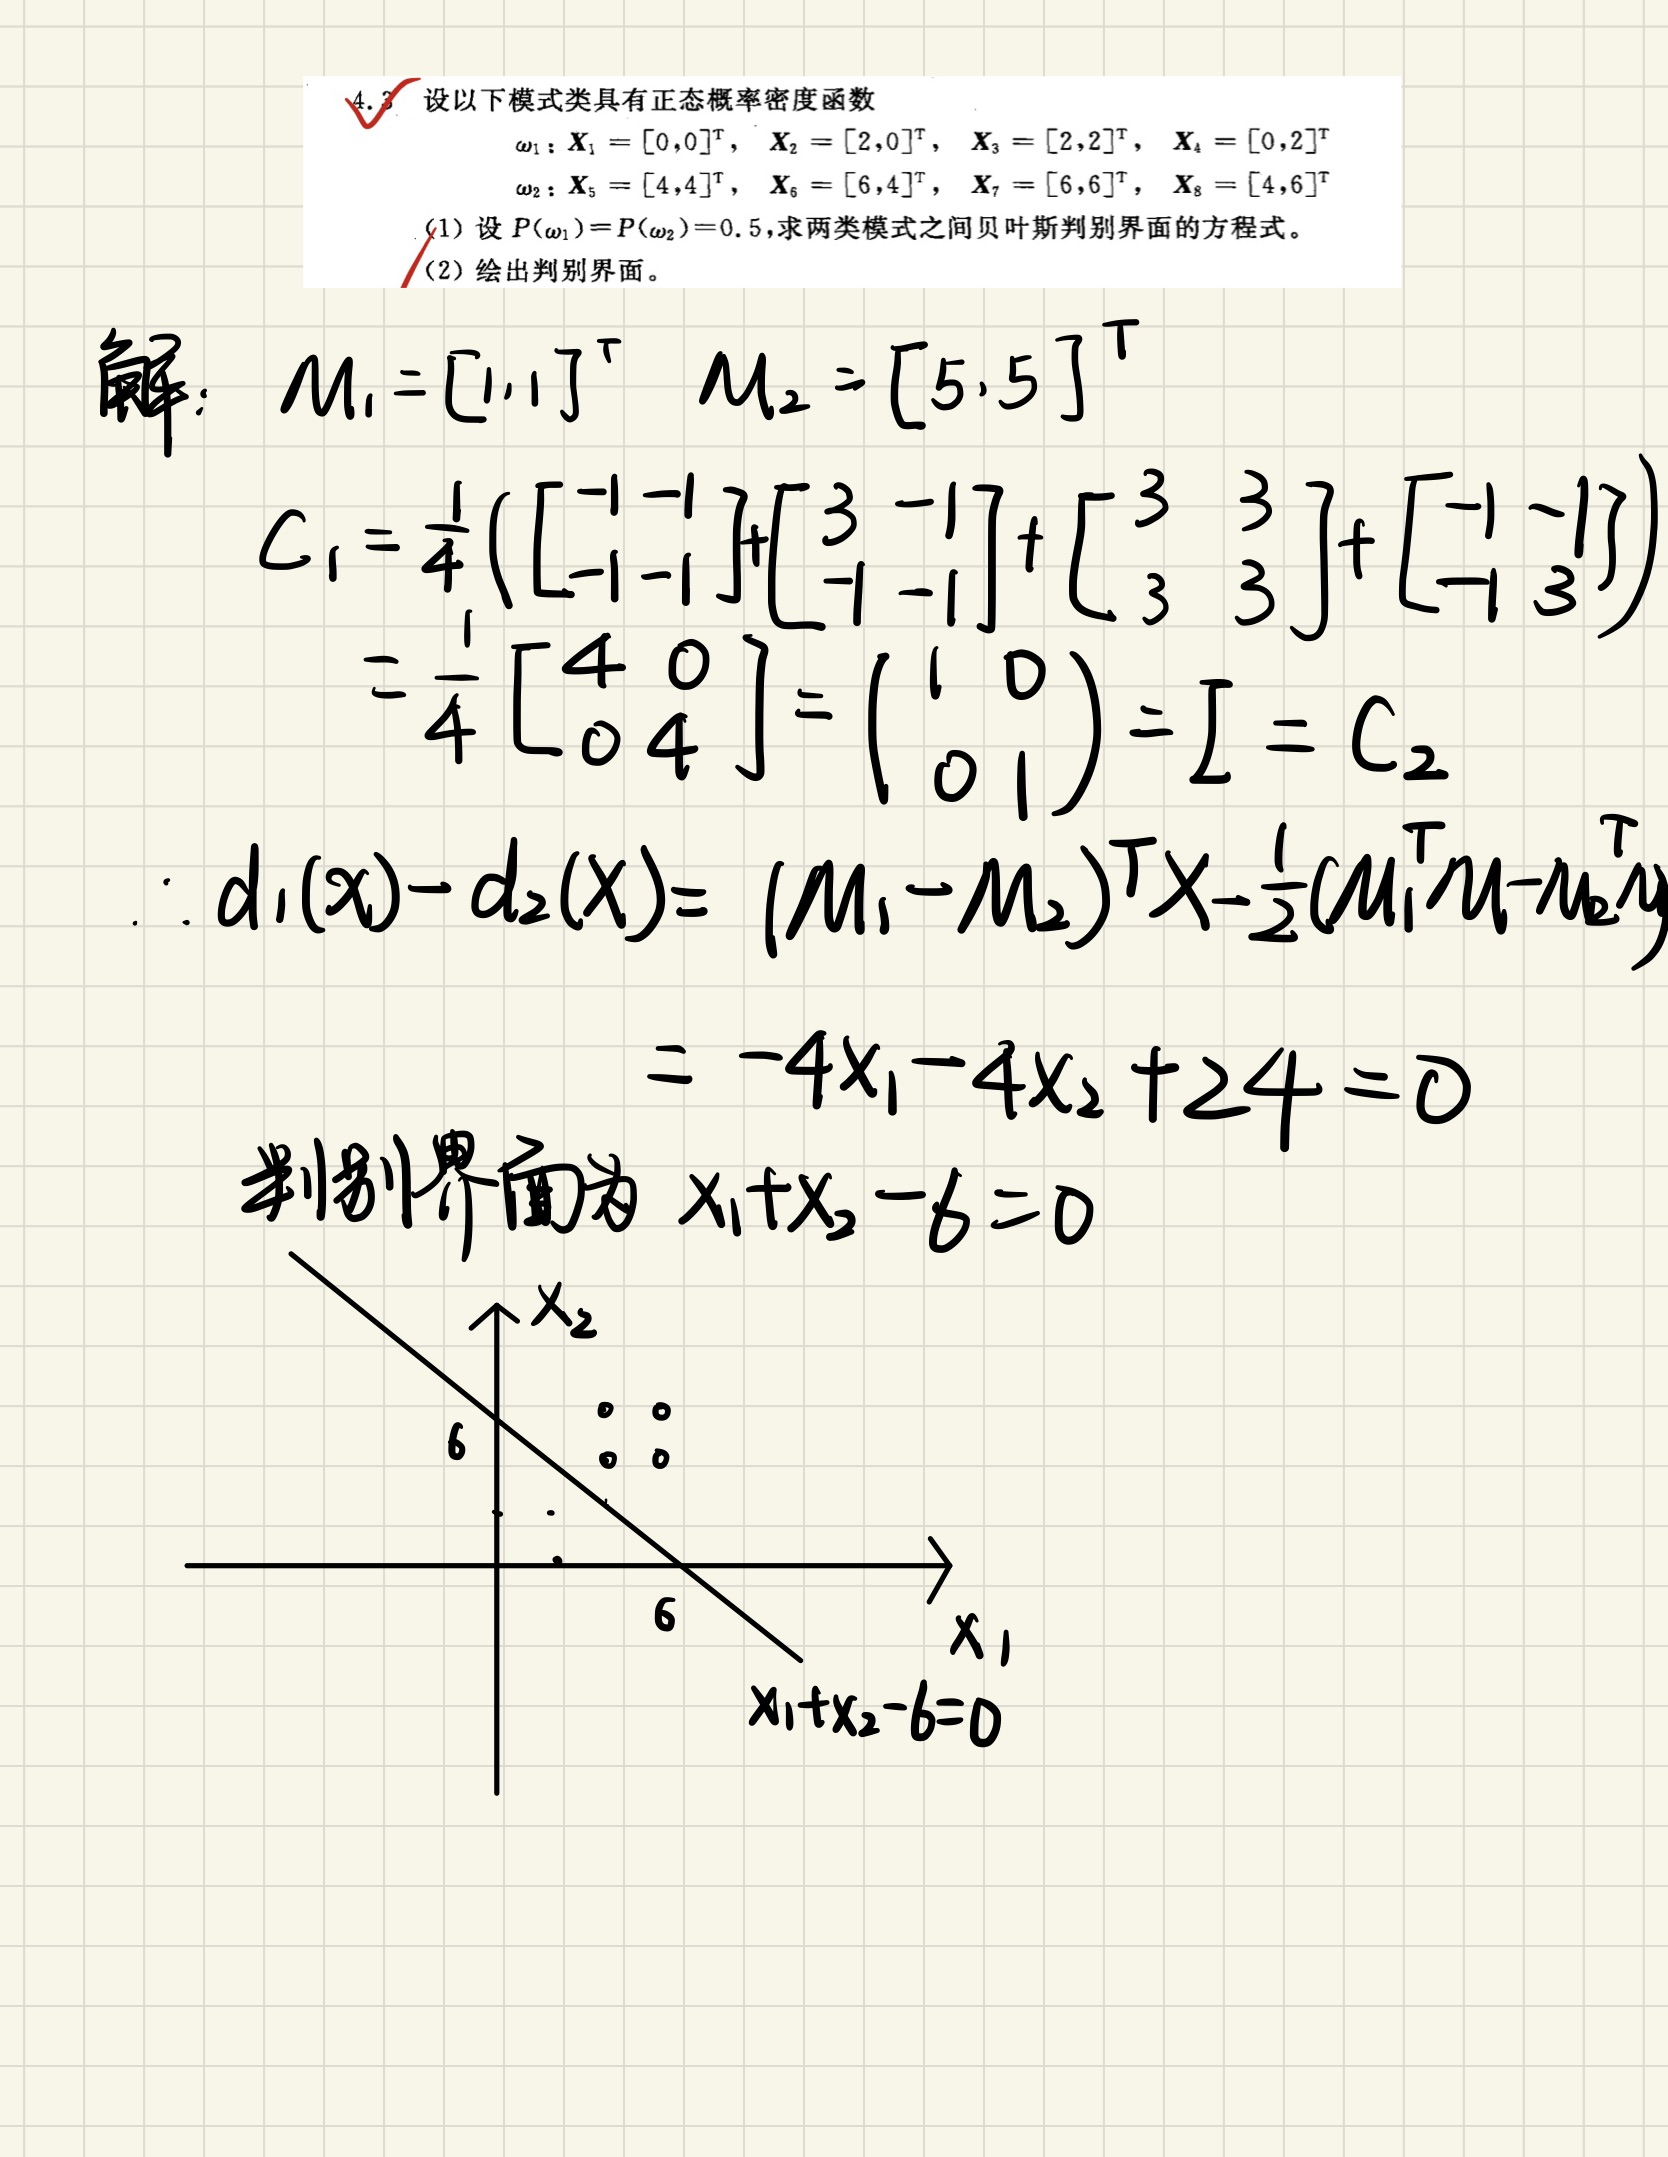 4.3 设以下模式类具有正态概率密度函数
ω₁: X₁ = [0,0]ᵀ, X₂ = [2,0]ᵀ, X₃ = [2,2]ᵀ, X₄ = [0,2]ᵀ
ω₂: X₅ = [4,4]ᵀ, X₆ = [6,4]ᵀ, X₇ = [6,6]ᵀ, X₈ = [4,6]ᵀ
(1) 设 P(ω₁)=P(ω₂)=0.5,求两类模式之间贝叶斯判别界面的方程式。
(2) 绘出判别界面。
解: M₁ = [1,1]ᵀ M₂ = [5,5]ᵀ
C₁ = 1/4 ([-1 -1; -1 -1] + [3 -1; -1 -1] + [3 3; 3 3] + [-1 -1; -1 3])
= 1/4 [4 0; 0 4] = (1 0; 0 1) = I = C₂
∴ d₁(x) - d₂(X) = (M₁ - M₂)ᵀX - 1/2 (M₁ᵀM₁ - M₂ᵀM
= -4x₁ - 4x₂ + 24 = 0
判别界面为 x₁+x₂-6=0
x₂
6
6
x₁
x₁+x₂-6=0